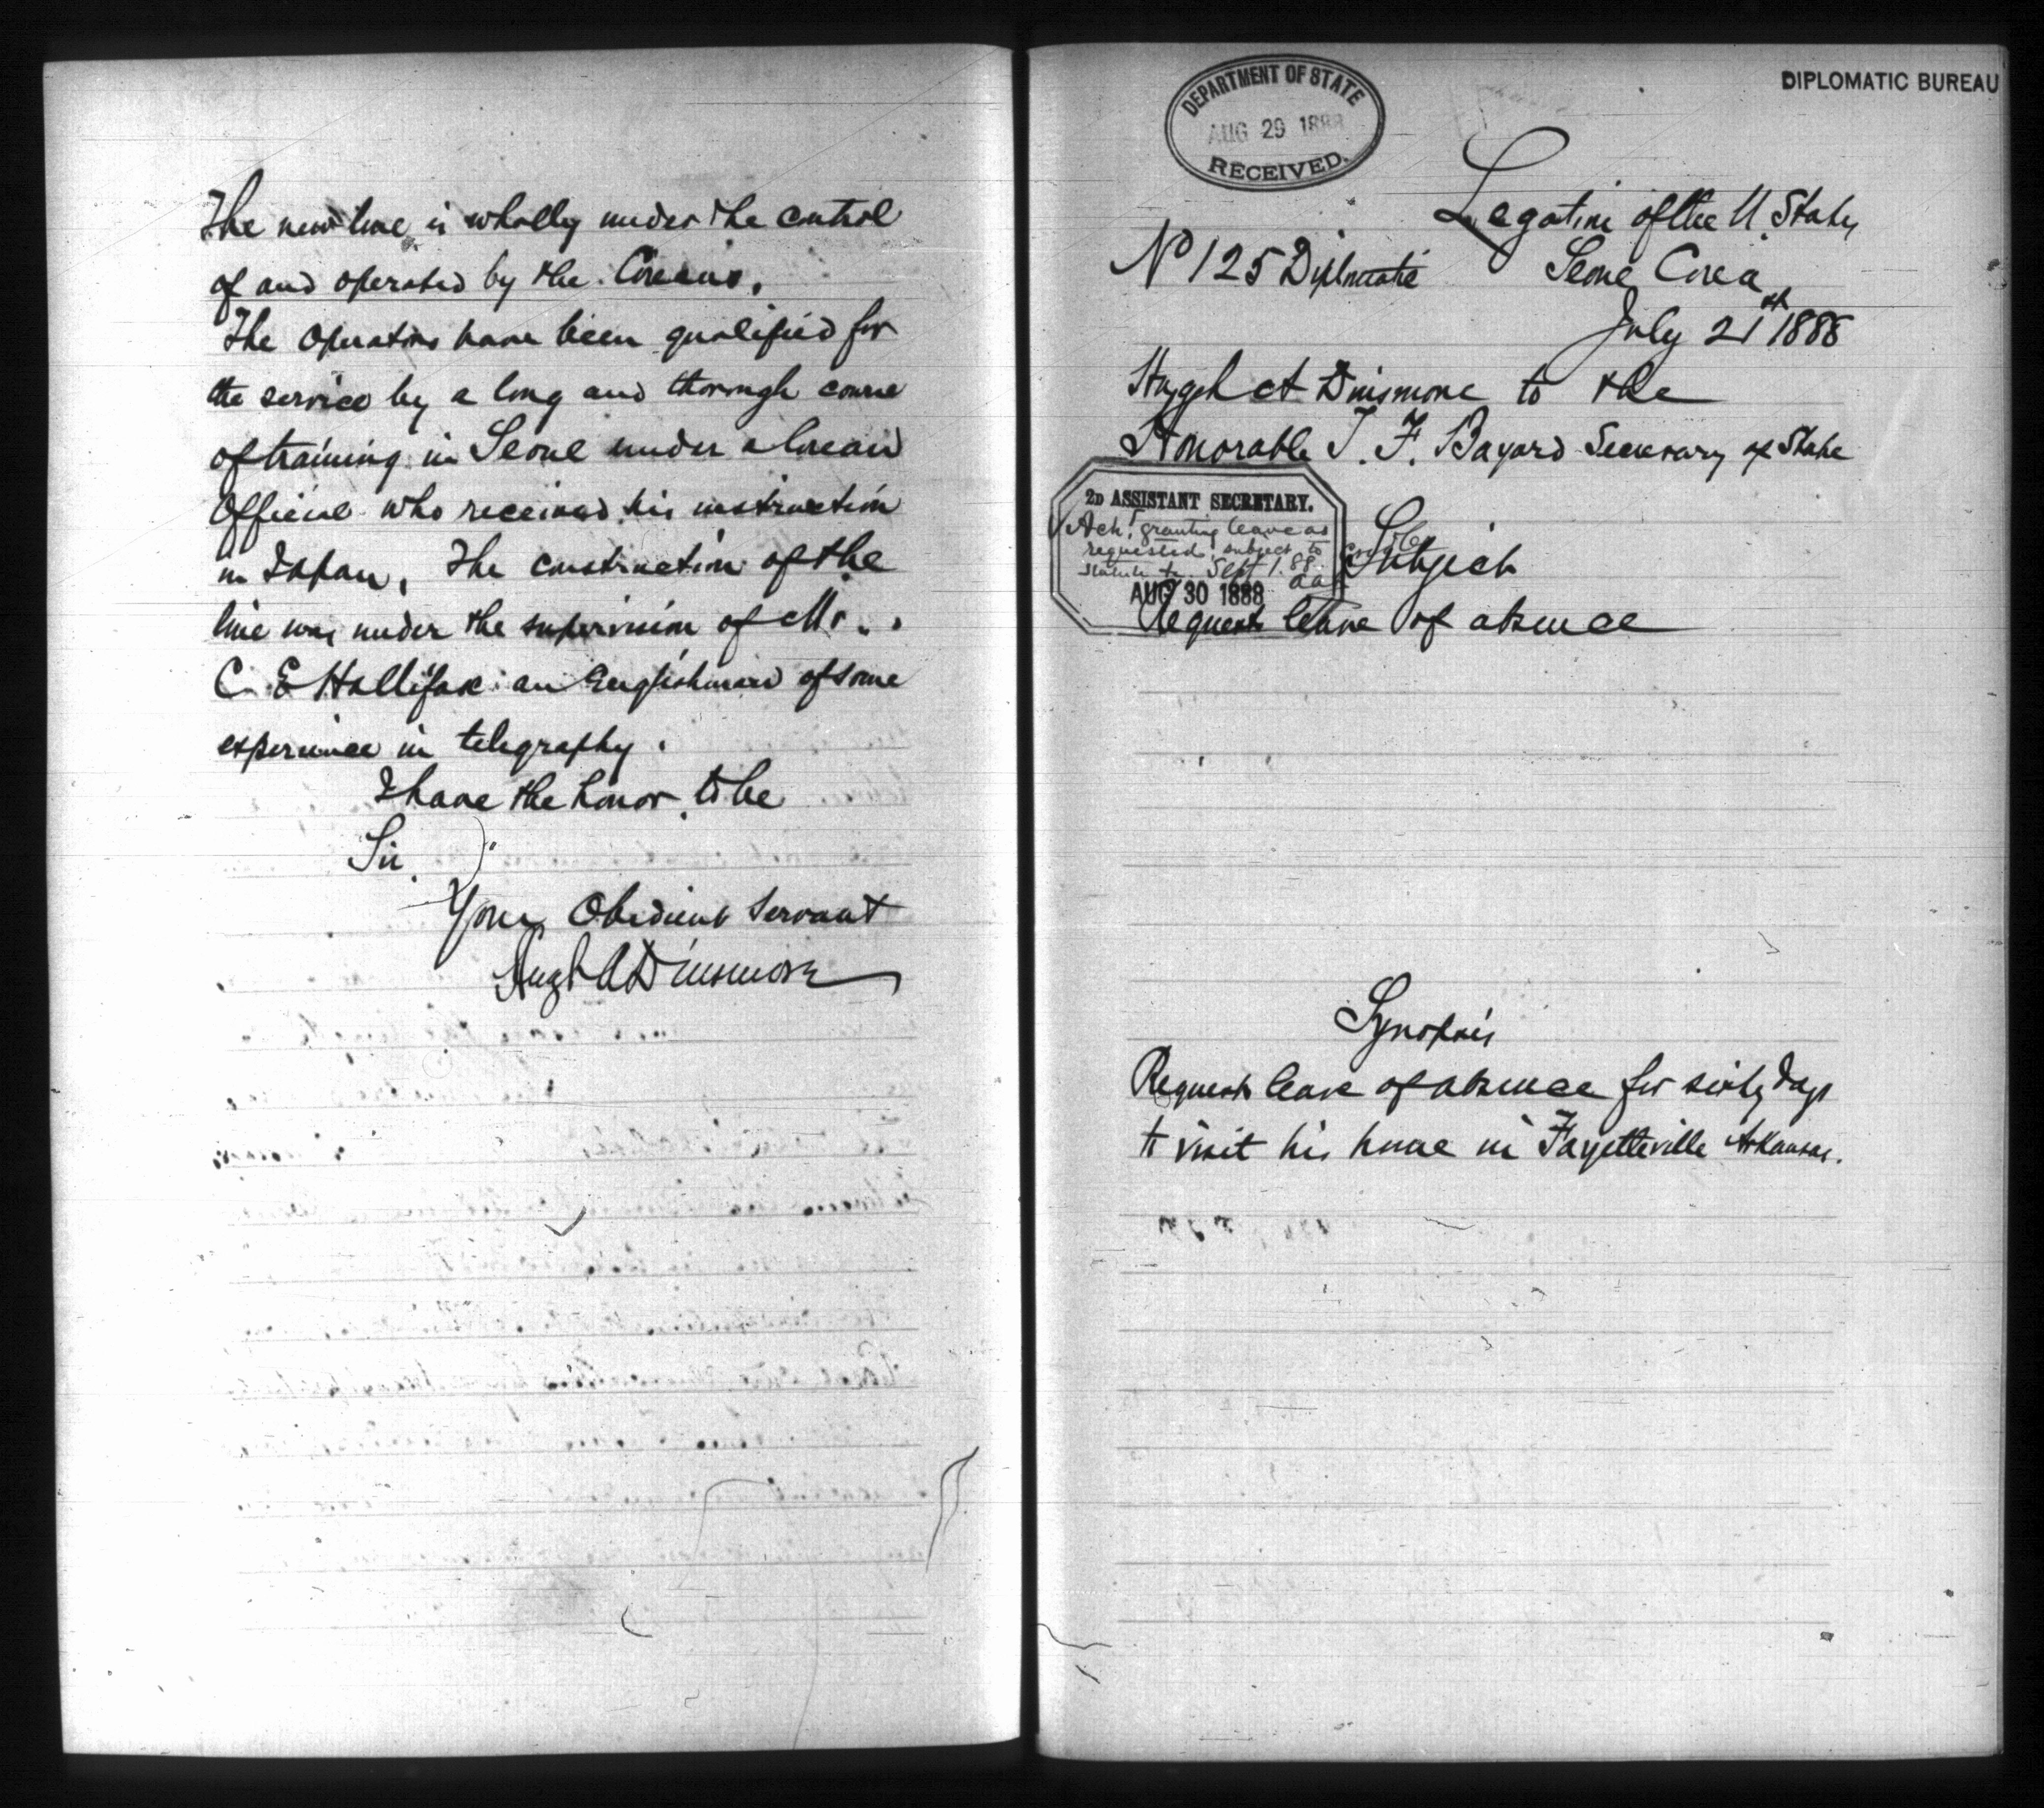 The new line is wholly under the control
of and operated by the Coreans.
The Operators have been qualified for
the service by a long and thorough course
of training in Seoul under a Corean
Official who received his instruction
in Japan. The construction of the
line was under the supervision of Mr.
C. E. Hallifax an Englishman of some
experience in telegraphy.
I have the honor to be
Sir.
Your Obedient Servant
Hugh A Dinsmore
DIPLOMATIC BUREAU
DEPARTMENT OF STATE
AUG 29 1888
RECEIVED.
Legation of the U. States
No 125 Diplomatic Seoul Corea
July 21st 1888
Hugh A Dinsmore to the
Honorable T. F. Bayard Secretary of State
2D ASSISTANT SECRETARY.
Ack. granting leave as
requested, subject to
statute Sept 1. 88
AUG 30 1888
Subject
Request leave of absence
Synopsis
Requests leave of absence for sixty days
to visit his home in Fayetteville Arkansas.